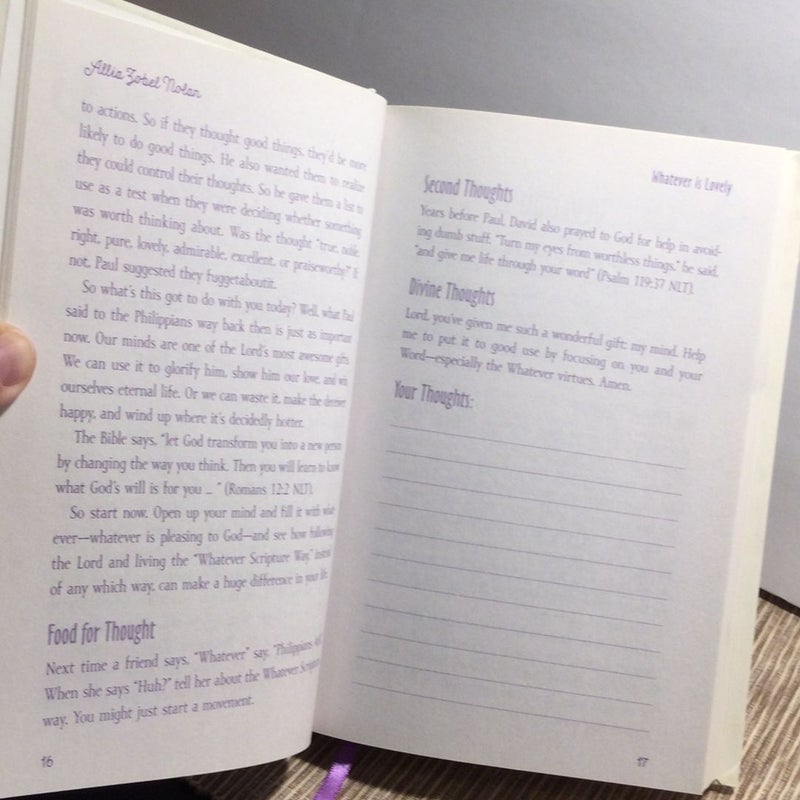 Allia Zobel Nolan
to actions. So if they thought good things, they'd be more
likely to do good things. He also wanted them to realize
they could control their thoughts. So he gave them a list to
use as a test when they were deciding whether something
was worth thinking about. Was the thought "true, noble,
right, pure, lovely, admirable, excellent, or praiseworthy?" If
not, Paul suggested they fuggetaboutit.
So what's this got to do with you today? Well, what Paul
said to the Philippians way back then is just as important
now. Our minds are one of the Lord's most awesome gifts.
We can use it to glorify him, show him our love, and win
ourselves eternal life. Or we can waste it, make the deceiver
happy, and wind up where it's decidedly hotter.
The Bible says, "let God transform you into a new person
by changing the way you think. Then you will learn to know
what God's will is for you ... " (Romans 12:2 NLT).
So start now. Open up your mind and fill it with what-
ever—whatever is pleasing to God—and see how following
the Lord and living the "Whatever Scripture Way," instead
of any which way, can make a huge difference in your life.
Food for Thought
Next time a friend says, "Whatever" say, "Philippians
When she says "Huh?" tell her about the Whatever Scripture
way. You might just start a movement.
16
Whatever is Lovely
Second Thoughts
Years before Paul, David also prayed to God for help in avoid-
ing dumb stuff. "Turn my eyes from worthless things," he said,
"and give me life through your word" (Psalm 119:37 NLT).
Divine Thoughts
Lord, you've given me such a wonderful gift: my mind. Help
me to put it to good use by focusing on you and your
Word—especially the Whatever virtues. Amen.
Your Thoughts:
17